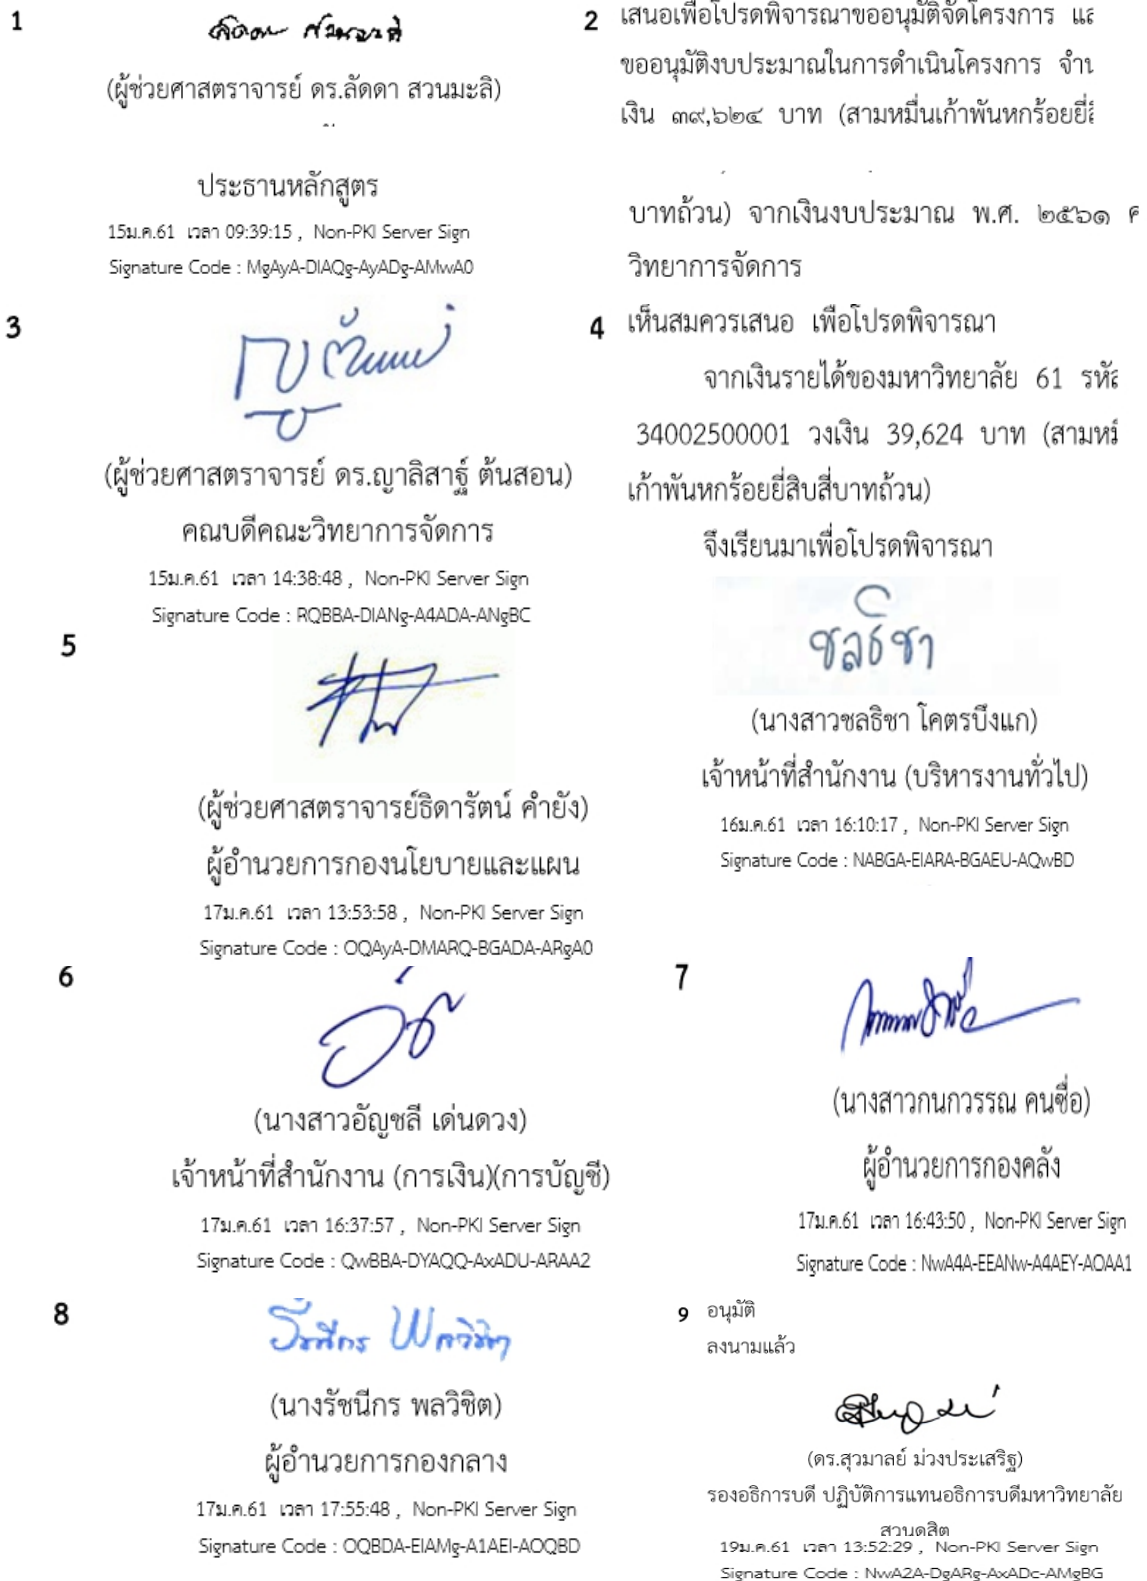 1
(ผู้ช่วยศาสตราจารย์ ดร.ลัดดา สวนมะลิ)
ประธานหลักสูตร
15ม.ค.61 เวลา 09:39:15 , Non-PKI Server Sign
Signature Code : MgAyA-DIAQg-AyADg-AMwA0
2 เสนอเพื่อโปรดพิจารณาขออนุมัติจัดโครงการ และ
ขออนุมัติงบประมาณในการดำเนินโครงการ จำน
เงิน ๓๙,๖๒๔ บาท (สามหมื่นเก้าพันหกร้อยยี่สิ
บาทถ้วน) จากเงินงบประมาณ พ.ศ. ๒๕๖๑ ค
วิทยาการจัดการ
3
(ผู้ช่วยศาสตราจารย์ ดร.ญาลิสาฐ์ ต้นสอน)
คณบดีคณะวิทยาการจัดการ
15ม.ค.61 เวลา 14:38:48 , Non-PKI Server Sign
Signature Code : RQBBA-DIANg-A4ADA-ANgBC
4 เห็นสมควรเสนอ เพือโปรดพิจารณา
จากเงินรายได้ของมหาวิทยาลัย 61 รหัส
34002500001 วงเงิน 39,624 บาท (สามหมื
เก้าพันหกร้อยยี่สิบสี่บาทถ้วน)
จึงเรียนมาเพื่อโปรดพิจารณา
ชลธิชา
(นางสาวชลธิชา โคตรบึงแก)
เจ้าหน้าที่สำนักงาน (บริหารงานทั่วไป)
16ม.ค.61 เวลา 16:10:17 , Non-PKI Server Sign
Signature Code : NABGA-EIARA-BGAEU-AQwBD
5
(ผู้ช่วยศาสตราจารย์ธิดารัตน์ คำยัง)
ผู้อำนวยการกองนโยบายและแผน
17ม.ค.61 เวลา 13:53:58 , Non-PKI Server Sign
Signature Code : OQAyA-DMARQ-BGADA-ARgA0
6
(นางสาวอัญชลี เด่นดวง)
เจ้าหน้าที่สำนักงาน (การเงิน)(การบัญชี)
17ม.ค.61 เวลา 16:37:57 , Non-PKI Server Sign
Signature Code : QwBBA-DYAQQ-AxADU-ARAA2
7
(นางสาวกนกวรรณ คนซื่อ)
ผู้อำนวยการกองคลัง
17ม.ค.61 เวลา 16:43:50 , Non-PKI Server Sign
Signature Code : NwA4A-EEANw-A4AEY-AOAA1
8
(นางรัชนีกร พลวิชิต)
ผู้อำนวยการกองกลาง
17ม.ค.61 เวลา 17:55:48 , Non-PKI Server Sign
Signature Code : OQBDA-EIAMg-A1AEI-AOQBD
9 อนุมัติ
ลงนามแล้ว
(ดร.สุวมาลย์ ม่วงประเสริฐ)
รองอธิการบดี ปฏิบัติการแทนอธิการบดีมหาวิทยาลัย
สวนดุสิต
19ม.ค.61 เวลา 13:52:29 , Non-PKI Server Sign
Signature Code : NwA2A-DgARg-AxADc-AMgBG